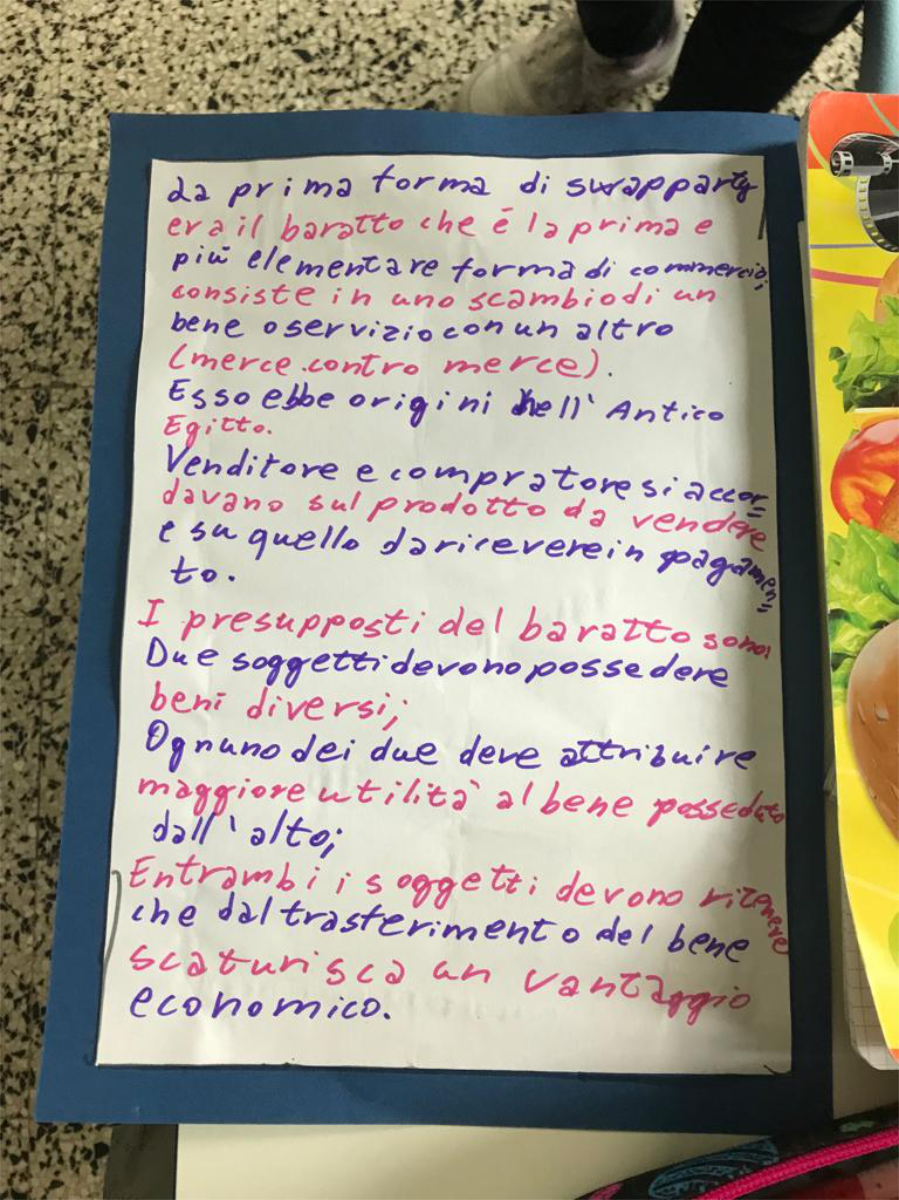 La prima forma di swapparty
era il baratto che é la prima e
più elementare forma di commercio;
consiste in uno scambio di un
bene o servizio con un altro
(merce contro merce).
Esso ebbe origini nell'Antico
Egitto.
Venditore e compratore si accor=
davano sul prodotto da vendere
e su quello da ricevere in pagamen=
to.
I presupposti del baratto sono:
Due soggetti devono possedere
beni diversi;
Ognuno dei due deve attribuire
maggiore utilità al bene posseduto
dall'alto;
Entrambi i soggetti devono ritenere
che dal trasferimento del bene
scaturisca un vantaggio
economico.